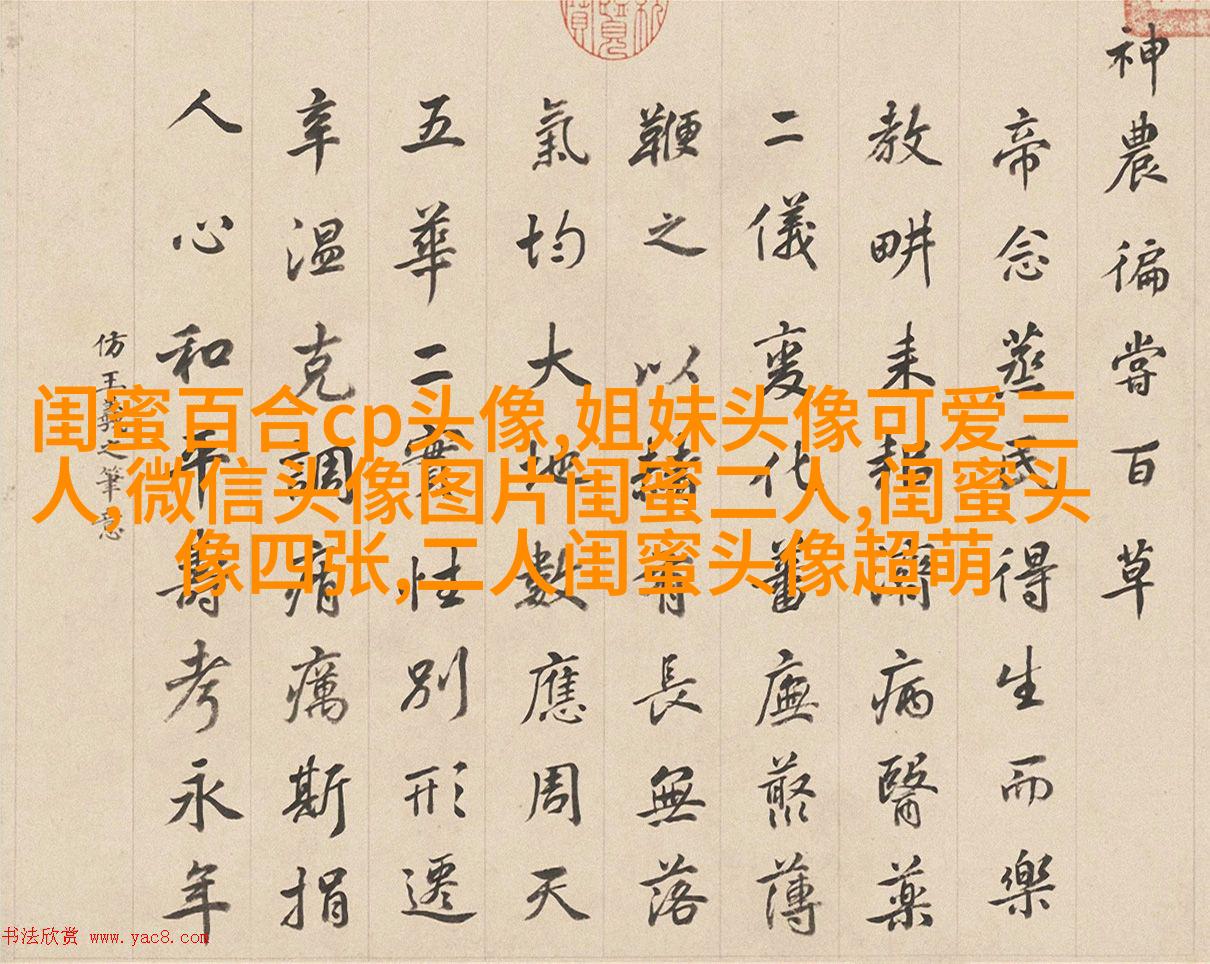 神農徧嘗百草
帝念蒸民得生而樂
教畊耒耨病醫藥
二儀變化蕃廡藂薄
鞭之以赭青長無落
氣均大地數應周天
五華二實性別形遷
辛温克調痟癘斯捐
人心和平壽考永年
仿王羲之筆意
闺蜜百合cp头像,姐妹头像可爱三
人,微信头像图片闺蜜二人,闺蜜头
像四张,二人闺蜜头像超萌
书法欣赏 www.yac8.com